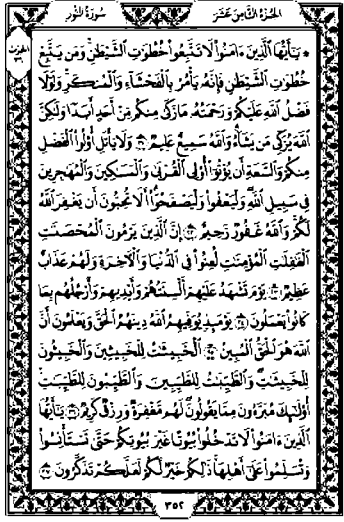 الجزء الثامن عشر سورة النور
الحزب ٣٦
۞ يَٰٓأَيُّهَا ٱلَّذِينَ ءَامَنُوا۟ لَا تَتَّبِعُوا۟ خُطُوَٰتِ ٱلشَّيْطَٰنِ وَمَن يَتَّبِعْ
خُطُوَٰتِ ٱلشَّيْطَٰنِ فَإِنَّهُۥ يَأْمُرُ بِٱلْفَحْشَآءِ وَٱلْمُنكَرِ وَلَوْلَا
فَضْلُ ٱللَّهِ عَلَيْكُمْ وَرَحْمَتُهُۥ مَا زَكَىٰ مِنكُم مِّنْ أَحَدٍ أَبَدًا وَلَٰكِنَّ
ٱللَّهَ يُزَكِّى مَن يَشَآءُ وَٱللَّهُ سَمِيعٌ عَلِيمٌ ٢١ وَلَا يَأْتَلِ أُو۟لُوا۟ ٱلْفَضْلِ
مِنكُمْ وَٱلسَّعَةِ أَن يُؤْتُوٓا۟ أُو۟لِى ٱلْقُرْبَىٰ وَٱلْمَسَٰكِينَ وَٱلْمُهَٰجِرِينَ
فِى سَبِيلِ ٱللَّهِ وَلْيَعْفُوا۟ وَلْيَصْفَحُوٓا۟ أَلَا تُحِبُّونَ أَن يَغْفِرَ ٱللَّهُ
لَكُمْ وَٱللَّهُ غَفُورٌ رَّحِيمٌ ٢٢ إِنَّ ٱلَّذِينَ يَرْمُونَ ٱلْمُحْصَنَٰتِ
ٱلْغَٰفِلَٰتِ ٱلْمُؤْمِنَٰتِ لُعِنُوا۟ فِى ٱلدُّنْيَا وَٱلْءَاخِرَةِ وَلَهُمْ عَذَابٌ
عَظِيمٌ ٢٣ يَوْمَ تَشْهَدُ عَلَيْهِمْ أَلْسِنَتُهُمْ وَأَيْدِيهِمْ وَأَرْجُلُهُم بِمَا
كَانُوا۟ يَعْمَلُونَ ٢٤ يَوْمَئِذٍ يُوَفِّيهِمُ ٱللَّهُ دِينَهُمُ ٱلْحَقَّ وَيَعْلَمُونَ أَنَّ
ٱللَّهَ هُوَ ٱلْحَقُّ ٱلْمُبِينُ ٢٥ ٱلْخَبِيثَٰتُ لِلْخَبِيثِينَ وَٱلْخَبِيثُونَ
لِلْخَبِيثَٰتِ وَٱلطَّيِّبَٰتُ لِلطَّيِّبِينَ وَٱلطَّيِّبُونَ لِلطَّيِّبَٰتِ
أُو۟لَٰٓئِكَ مُبَرَّءُونَ مِمَّا يَقُولُونَ لَهُم مَّغْفِرَةٌ وَرِزْقٌ كَرِيمٌ ٢٦ يَٰٓأَيُّهَا
ٱلَّذِينَ ءَامَنُوا۟ لَا تَدْخُلُوا۟ بُيُوتًا غَيْرَ بُيُوتِكُمْ حَتَّىٰ تَسْتَأْنِسُوا۟
وَتُسَلِّمُوا۟ عَلَىٰٓ أَهْلِهَا ذَٰلِكُمْ خَيْرٌ لَّكُمْ لَعَلَّكُمْ تَذَكَّرُونَ ٢٧
٣٥٢